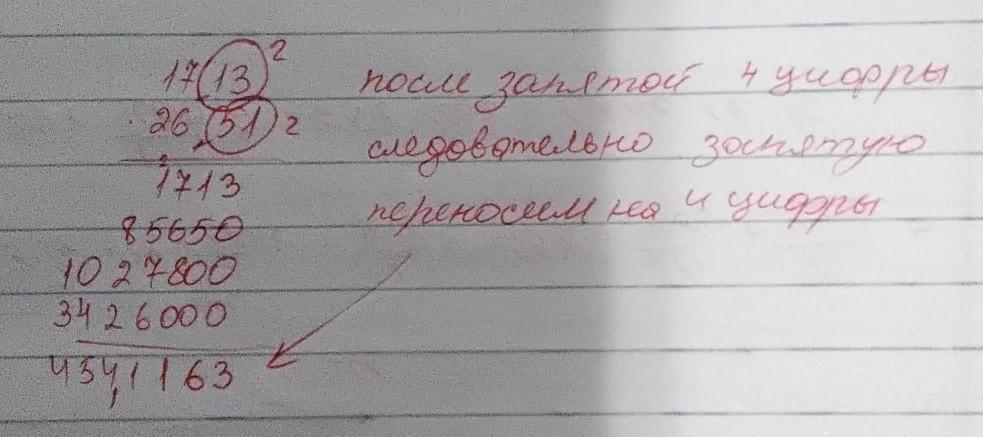 17,13 2 после запятой 4 цифры
26,51 2 следовательно запятую
1713 переносим на 4 цифры
85650
1027800
3426000
454,1163